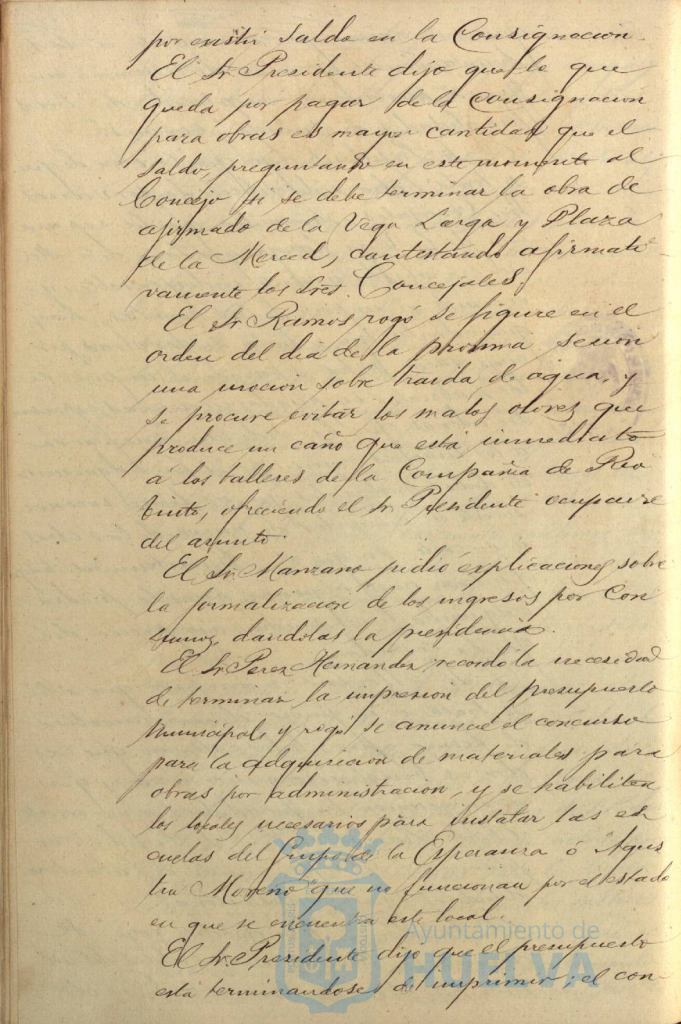 por existir saldo en la Consignacion.
El Sr. Presidente dijo que lo que
queda por pagar de la consignacion
para obras es mayor cantidad que el
saldo, preguntando en este momento al
Concejo si se debe terminar la obra de
afirmado de la Vega Larga y Plaza
de la Merced, contestando afirmati-
vamente los Sres. Concejales.
El Sr. Ramos rogó se figure en el
orden del dia de la proxima sesion
una mocion sobre traida de agua, y
se procure evitar los malos olores que
produce un caño que está inmediato
á los talleres de la Compañia de Rio
Tinto, ofreciendo el Sr. Presidente ocuparse
del asunto.
El Sr. Manzano pidió explicaciones sobre
la formalizacion de los ingresos por Con
sumos, dandolas la presidencia.
El Sr. Perez Hernandez recordó la necesidad
de terminar la impresion del presupuesto
Municipal y rogó se anuncie el concurso
para la adquisicion de materiales para
obras por administracion, y se habiliten
los locales necesarios para instalar las es
cuelas del Grupo de la Esperanza ó "Agus
tin Moreno" que no funcionan por el estado
en que se encuentra este local.
El Sr. Presidente dijo que el presupuesto
está terminandose de imprimir; el con-
Ayuntamiento de
HUELVA